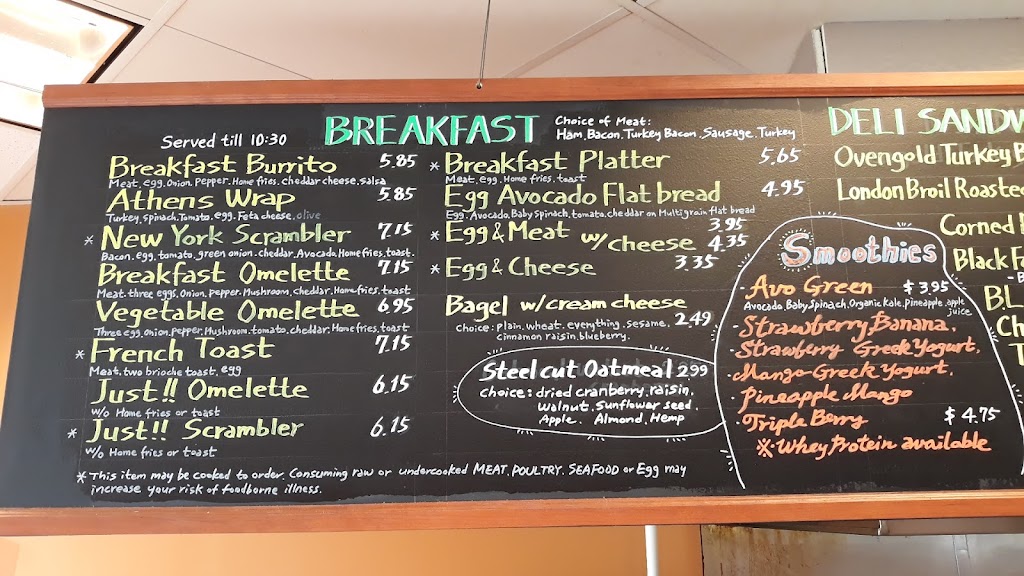 Served till 10:30
BREAKFAST
Choice of Meat:
Ham, Bacon, Turkey Bacon, Sausage, Turkey
Breakfast Burrito 5.85
Meat, egg, Onion, Pepper, Home fries, cheddar cheese, salsa
Athens Wrap 5.85
Turkey, spinach, Tomato, egg, Feta cheese, olive
* New York Scrambler 7.15
Bacon, egg, tomato, green onion, cheddar, Avocado, Home fries, toast.
Breakfast Omelette 7.15
Meat, three eggs, Onion, Pepper, Mushroom, cheddar, Home fries, toast
Vegetable Omelette 6.95
Three egg, onion, Pepper, Mushroom, tomato, cheddar, Home fries, toast
* French Toast 7.15
Meat, two brioche toast, egg
Just!! Omelette 6.15
w/o Home fries or toast
* Just!! Scrambler 6.15
w/o Home fries or toast
* This item may be cooked to order. Consuming raw or undercooked MEAT, POULTRY, SEAFOOD or Egg may
increase your risk of foodborne illness.
* Breakfast Platter 5.65
Meat, egg, Home fries, toast
Egg Avocado Flat bread 4.95
Egg, Avocado, Baby Spinach, tomato, cheddar on Multigrain flat bread
* Egg & Meat 3.95
w/cheese 4.35
* Egg & Cheese 3.35
Bagel w/cream cheese 2.49
choice: plain, wheat, everything, sesame,
cinnamon raisin, blueberry.
Steel cut Oatmeal 2.99
choice: dried cranberry, raisin,
Walnut, Sunflower seed,
Apple, Almond, Hemp
DELI SANDW
Ovengold Turkey B
London Broil Roasted
Corned
Black Fo
BL
Ch
T
Smoothies
- Avo Green $3.95
Avocado, Baby Spinach, Organic kale, pineapple, apple
juice
- Strawberry Banana,
- Strawberry Greek Yogurt,
- Mango Greek Yogurt,
- Pineapple Mango
- Triple Berry $4.75
※ Whey Protein available